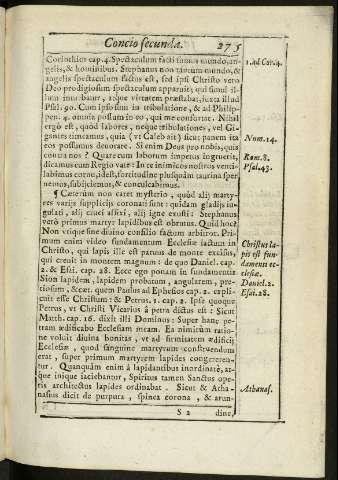 Concio secunda. 275
Corinthios cap. 4. Spectaculum facti sumus mundo, an-
gelis, & hominibus. Stephanus non tantum mundo, &
angelis spectaculum factus est, sed ipsi Christo vero
Deo prodigiosum spectaculum apparuit, qui simul il-
lum intuebatur, atque virtutem præstabat, iuxta illud
Psal. 90. Cum ipso sum in tribulatione, & ad Philip-
pen. 4. omnia possum in eo, qui me confortat. Nihil
ergò est, quod labores, neque tribulationes, vel Gi-
gantes timeamus, quia (vt Caleb ait) sicut panem ita
eos possumus deuorare. Si enim Deus pro nobis, quis
contra nos? Quare cum laborum impetus ingruerit,
dicamus cum Regio vate: In te inimicos nostros venti-
labimus cornu, idest, fortitudine plusquàm taurina sper-
nemus, subijciemus, & conculcabimus.
¶ Cæterum non caret mysterio, quòd alij marty-
res varijs supplicijs coronati sunt: quidam gladijs iu-
gulati, alij cruci affixi, alij igne exusti: Stephanus
verò primus martyr lapidibus est obrutus. Quid hoc?
Non vtique sine diuino consilio factum arbitror. Pri-
mum enim video fundamentum Ecclesiæ iactum in
Christo, qui lapis ille est paruus de monte excisus,
qui creuit in montem magnum: de quo Daniel. cap.
2. & Esai. cap. 28. Ecce ego ponam in fundamentis
Sion lapidem, lapidem probatum, angularem, pre-
tiosum, &cæt. quem Paulus ad Ephesios cap. 2. expli-
cuit esse Christum: & Petrus. 1. cap. 2. Ipse quoque
Petrus, vt Christi Vicarius à petra dictus est: Sicut
Matth. cap. 16. dixit illi Dominus: Super hanc pe-
tram ædificabo Ecclesiam meam. Ea nimirùm ratio-
ne voluit diuina bonitas, vt ad firmitatem ædificij
Ecclesiæ, quod sanguine martyrum construendum
erat, super primum martyrem lapides congererren-
tur. Quanquàm enim à lapidantibus inordinatè, at-
que iniquè iaciebantur, Spiritus tamen Sanctus ope-
ris architectus lapides ordinabat. Sicut & Atha-
nasius dicit de purpura, spinea corona, & arun-
S 2 dine,
1. ad Cor. 4.
Num. 14.
Rom. 8.
Psal. 43.
Christus la-
pis est fun-
damenti ec-
clesiæ.
Daniel. 2.
Esai. 28.
Athanas.